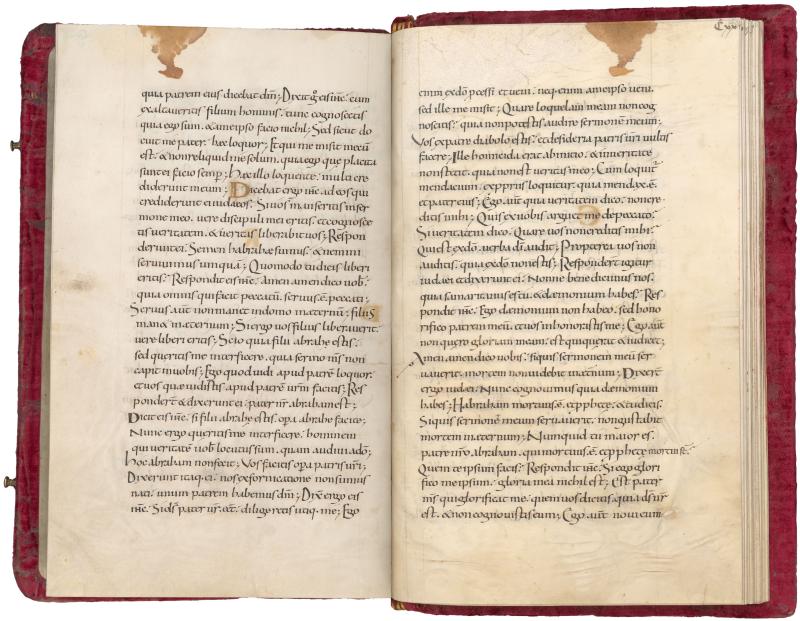 quia patrem eius dicebat dm̄; Dixit g̊ eis ihē. cum
exaltaveritis filium hominis. tunc cognoscetis
quia ego sum. & a me ipso facio nichil; Sed sicut do
cuit me pater. hec loquor; Et qui me misit mecū
est. & non reliquid me solum. quia ego que placita
sunt ei facio semp̄; Hec illo loquente. multi cre
diderunt in eum; Dicebat ergo ihē. ad eos qui
crediderunt ei iudęos; Si vos manseritis in ser
mone meo. vere discipuli mei eritis. & cognosce
tis veritatem. & veritas liberabit vos; Respon
derunt ei. Semen habrahę sumus. & nemini
servivimus umquā; Quomodo tu dicis liberi
eritis; Respondit eis ihē. Amen amen dico vob̄.
quia omnis qui facit peccatū. servus .ē. peccati;
Servus aūt non manet in domo in ęternū; filius
man& in ęternum; Si ergo vos filius liberaverit.
vere liberi eritis; Scio quia filii abrahę estis.
sed queritis me interficere. quia sermo m̄s non
capit in vobis; Ego quod vidi apud patrē loquor.
et vos quę vidistis apud patrem vr̄m facitis; Res
pondert̄ & dixerunt ei; pater nr̄ abraham est;
Dicit eis ihē. si filii abrahę estis. opa abrahę facite;
Nunc ergo queritis me interficere. hominem
qui veritatē vob̄ locutus sum. quam audivi a dō;
hoc abraham non fecit; Vos facitis opa patris vr̄i;
Dixerunt itaq; ei. nos ex fornicatione non sumus
nati. unum patrem habemus dm̄; Dix̄ ergo eis
ihē. Si ds̄ pater vr̄ .e&. diligeretis utiq; me; Ego
enim ex dō pcessi et veni. neq; enim a me ipso veni.
sed ille me misit; Quare loquelam meam non cog
noscitis. quia non potestis audire sermonē meum;
Vos ex patre diabolo estis. et desideria patris vr̄i vultis
facere; Ille homicida erat ab inicio. & in veritate
non stetit. quia non est veritas in eo; Cum loquit̄
mendacium. ex ppriis loquitur. quia mendax .ē.
et pater eius; Ego aūt quia veritatem dico. non cre
ditis mihi; Quis ex vobis arguet me de peccato;
Si veritatem dico. Quare vos non creditis mihi;
Qui est ex dō. verba dī audit; Propterea vos non
auditis. quia ex dō non estis; Respondert̄ igitur
iudaei et dixerunt ei. Nonne bene dicimus nos.
quia samaritanus es tu. & daemonium habes; Res
pondit ihē. Ego daemonium non habeo. sed hono
rifico patrem meū. et vos inhonorastis me; Ego aūt
non quero gloriam meam. est qui querat & iudicet;
Amen amen dico vobis. siquis sermonem meū ser
vaverit. mortem non videbit in ęternum; Dixert̄
ergo iudaei. Nunc cognovimus quia daemonium
habes; Habraham mortuus .ē. et pphetę. & tu dicis.
Siquis sermonem meum servaverit. non gustabit
mortem in ęternum; Numquid tu maior es.
patre nr̄o abraham. qui mortuus .ē. et pphetę mortui s̄t.
Quem te ipsum facis; Respondit ihē. Si ego glori
fico me ipsum. gloria mea nichil est; Est pater
m̄s qui glorificat me. quem vos dicitis. quia ds̄ nr̄
est. & non cognovistis eum; Ego aūt novi eum